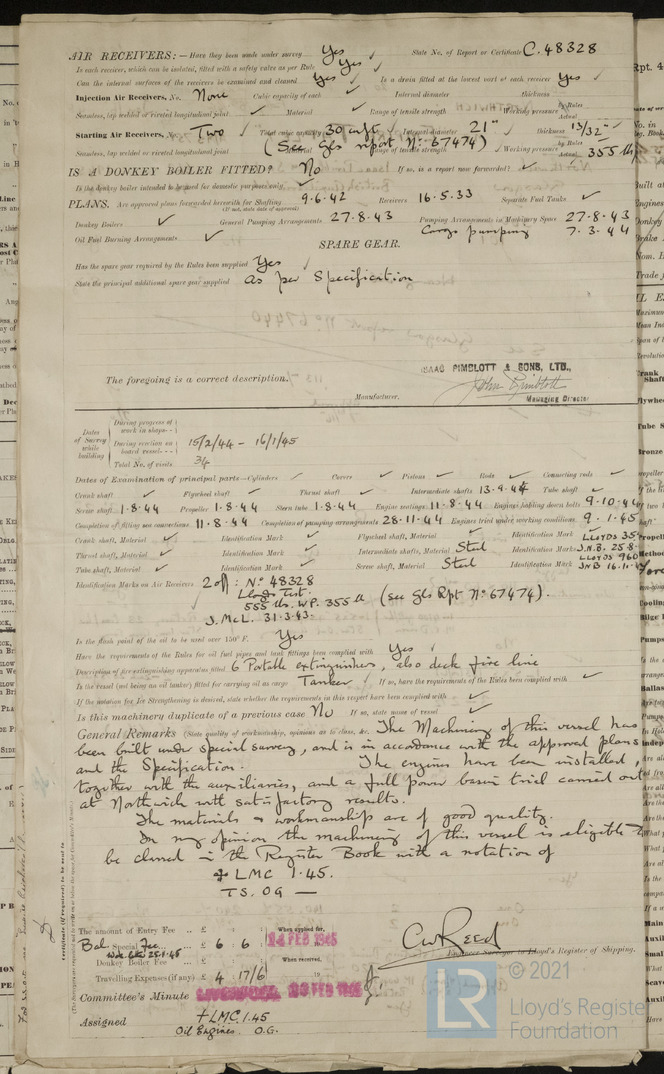 AIR RECEIVERS:— Have they been made under survey Yes ✓ State No. of Report or Certificate C. 48328
Is each receiver, which can be isolated, fitted with a safety valve as per Rule Yes ✓
Can the internal surfaces of the receivers be examined and cleaned Yes ✓ Is a drain fitted at the lowest part of each receiver Yes ✓
Injection Air Receivers, No. None Cubic capacity of each ✓ Internal diameter thickness
Seamless, lap welded or riveted longitudinal joint ✓ Material ✓ Range of tensile strength Working pressure by Rules Actual
Starting Air Receivers, No. Two ✓ Total cubic capacity 30 cu ft ✓ Internal diameter 21" ✓ thickness 13/32" ✓
Seamless, lap welded or riveted longitudinal joint (See Gls report No. 67474) Material Range of tensile strength ✓ Working pressure by Rules Actual 355 lb
IS A DONKEY BOILER FITTED? No If so, is a report now forwarded? ✓
Is the donkey boiler intended to be used for domestic purposes only ✓
PLANS. Are approved plans forwarded herewith for Shafting 9.6.42 Receivers 16.5.33 Separate Fuel Tanks ✓
(If not, state date of approval)
Donkey Boilers ✓ General Pumping Arrangements 27.8.43 Pumping Arrangements in Machinery Space 27-8-43
Oil Fuel Burning Arrangements ✓ Cargo pumping 7.3.44
SPARE GEAR.
Has the spare gear required by the Rules been supplied Yes ✓
State the principal additional spare gear supplied as per Specification
ISAAC PIMBLOTT & SONS, LTD.,
The foregoing is a correct description. John Pimblott
Manufacturer. Managing Director
Dates of Survey while building
During progress of work in shops--
During erection on board vessel--- 15/2/44 - 16/1/45
Total No. of visits 34
Dates of Examination of principal parts—Cylinders ✓ Covers ✓ Pistons ✓ Rods ✓ Connecting rods ✓
Crank shaft ✓ Flywheel shaft ✓ Thrust shaft ✓ Intermediate shafts 13.9.44 Tube shaft ✓
Screw shaft 1.8.44 Propeller 1.8.44 Stern tube 1.8.44 Engine seatings 11.8.44 Engines holding down bolts 9.10.44
Completion of fitting sea connections 11.8.44 Completion of pumping arrangements 28.11.44 Engines tried under working conditions 9.1.45
Crank shaft, Material ✓ Identification Mark ✓ Flywheel shaft, Material ✓ Identification Mark ✓
Thrust shaft, Material ✓ Identification Mark ✓ Intermediate shafts, Material Steel Identification Marks J.N.B. 25.8-
Tube shaft, Material ✓ Identification Mark ✓ Screw shaft, Material Steel Identification Mark JNB 16.10.
Identification Marks on Air Receivers 2 off: No 48328
Lloyds Test.
555 lbs. W.P. 355 lb (see Gls Rpt No. 67474).
J. McL. 31.3.43.
Is the flash point of the oil to be used over 150° F. Yes
Have the requirements of the Rules for oil fuel pipes and tank fittings been complied with Yes ✓
Description of fire extinguishing apparatus fitted 6 Portable extinguishers, also deck fire line
Is the vessel (not being an oil tanker) fitted for carrying oil as cargo Tanker ✓ If so, have the requirements of the Rules been complied with ✓
If the notation for Ice Strengthening is desired, state whether the requirements in this respect have been complied with ✓
Is this machinery duplicate of a previous case No If so, state name of vessel ✓
General Remarks (State quality of workmanship, opinions as to class, &c. The Machinery of this vessel has
been built under special survey, and is in accordance with the approved plans
and the Specification. The engines have been installed,
together with the auxiliaries, and a full power basin trial carried out
at Northwich with satisfactory results.
The materials & workmanship are of good quality.
In my opinion the machinery of this vessel is eligible to
be classed in the Register Book with a notation of
+ LMC 1.45.
TS. OG —
The amount of Entry Fee .. £ : : When applied for,
Bal Special Fee £ 6 : 6 : 14 FEB 1945
Donkey Boiler Fee £ : : When received,
Travelling Expenses (if any) £ 4 : 17/6 : 19
CW Reed
Engineer Surveyor to Lloyd's Register of Shipping.
Committee's Minute LIVERPOOL 20 FEB 1945
Assigned + LMC 1.45
Oil Engines. O.G.
LR © 2021
Lloyd's Register
Foundation